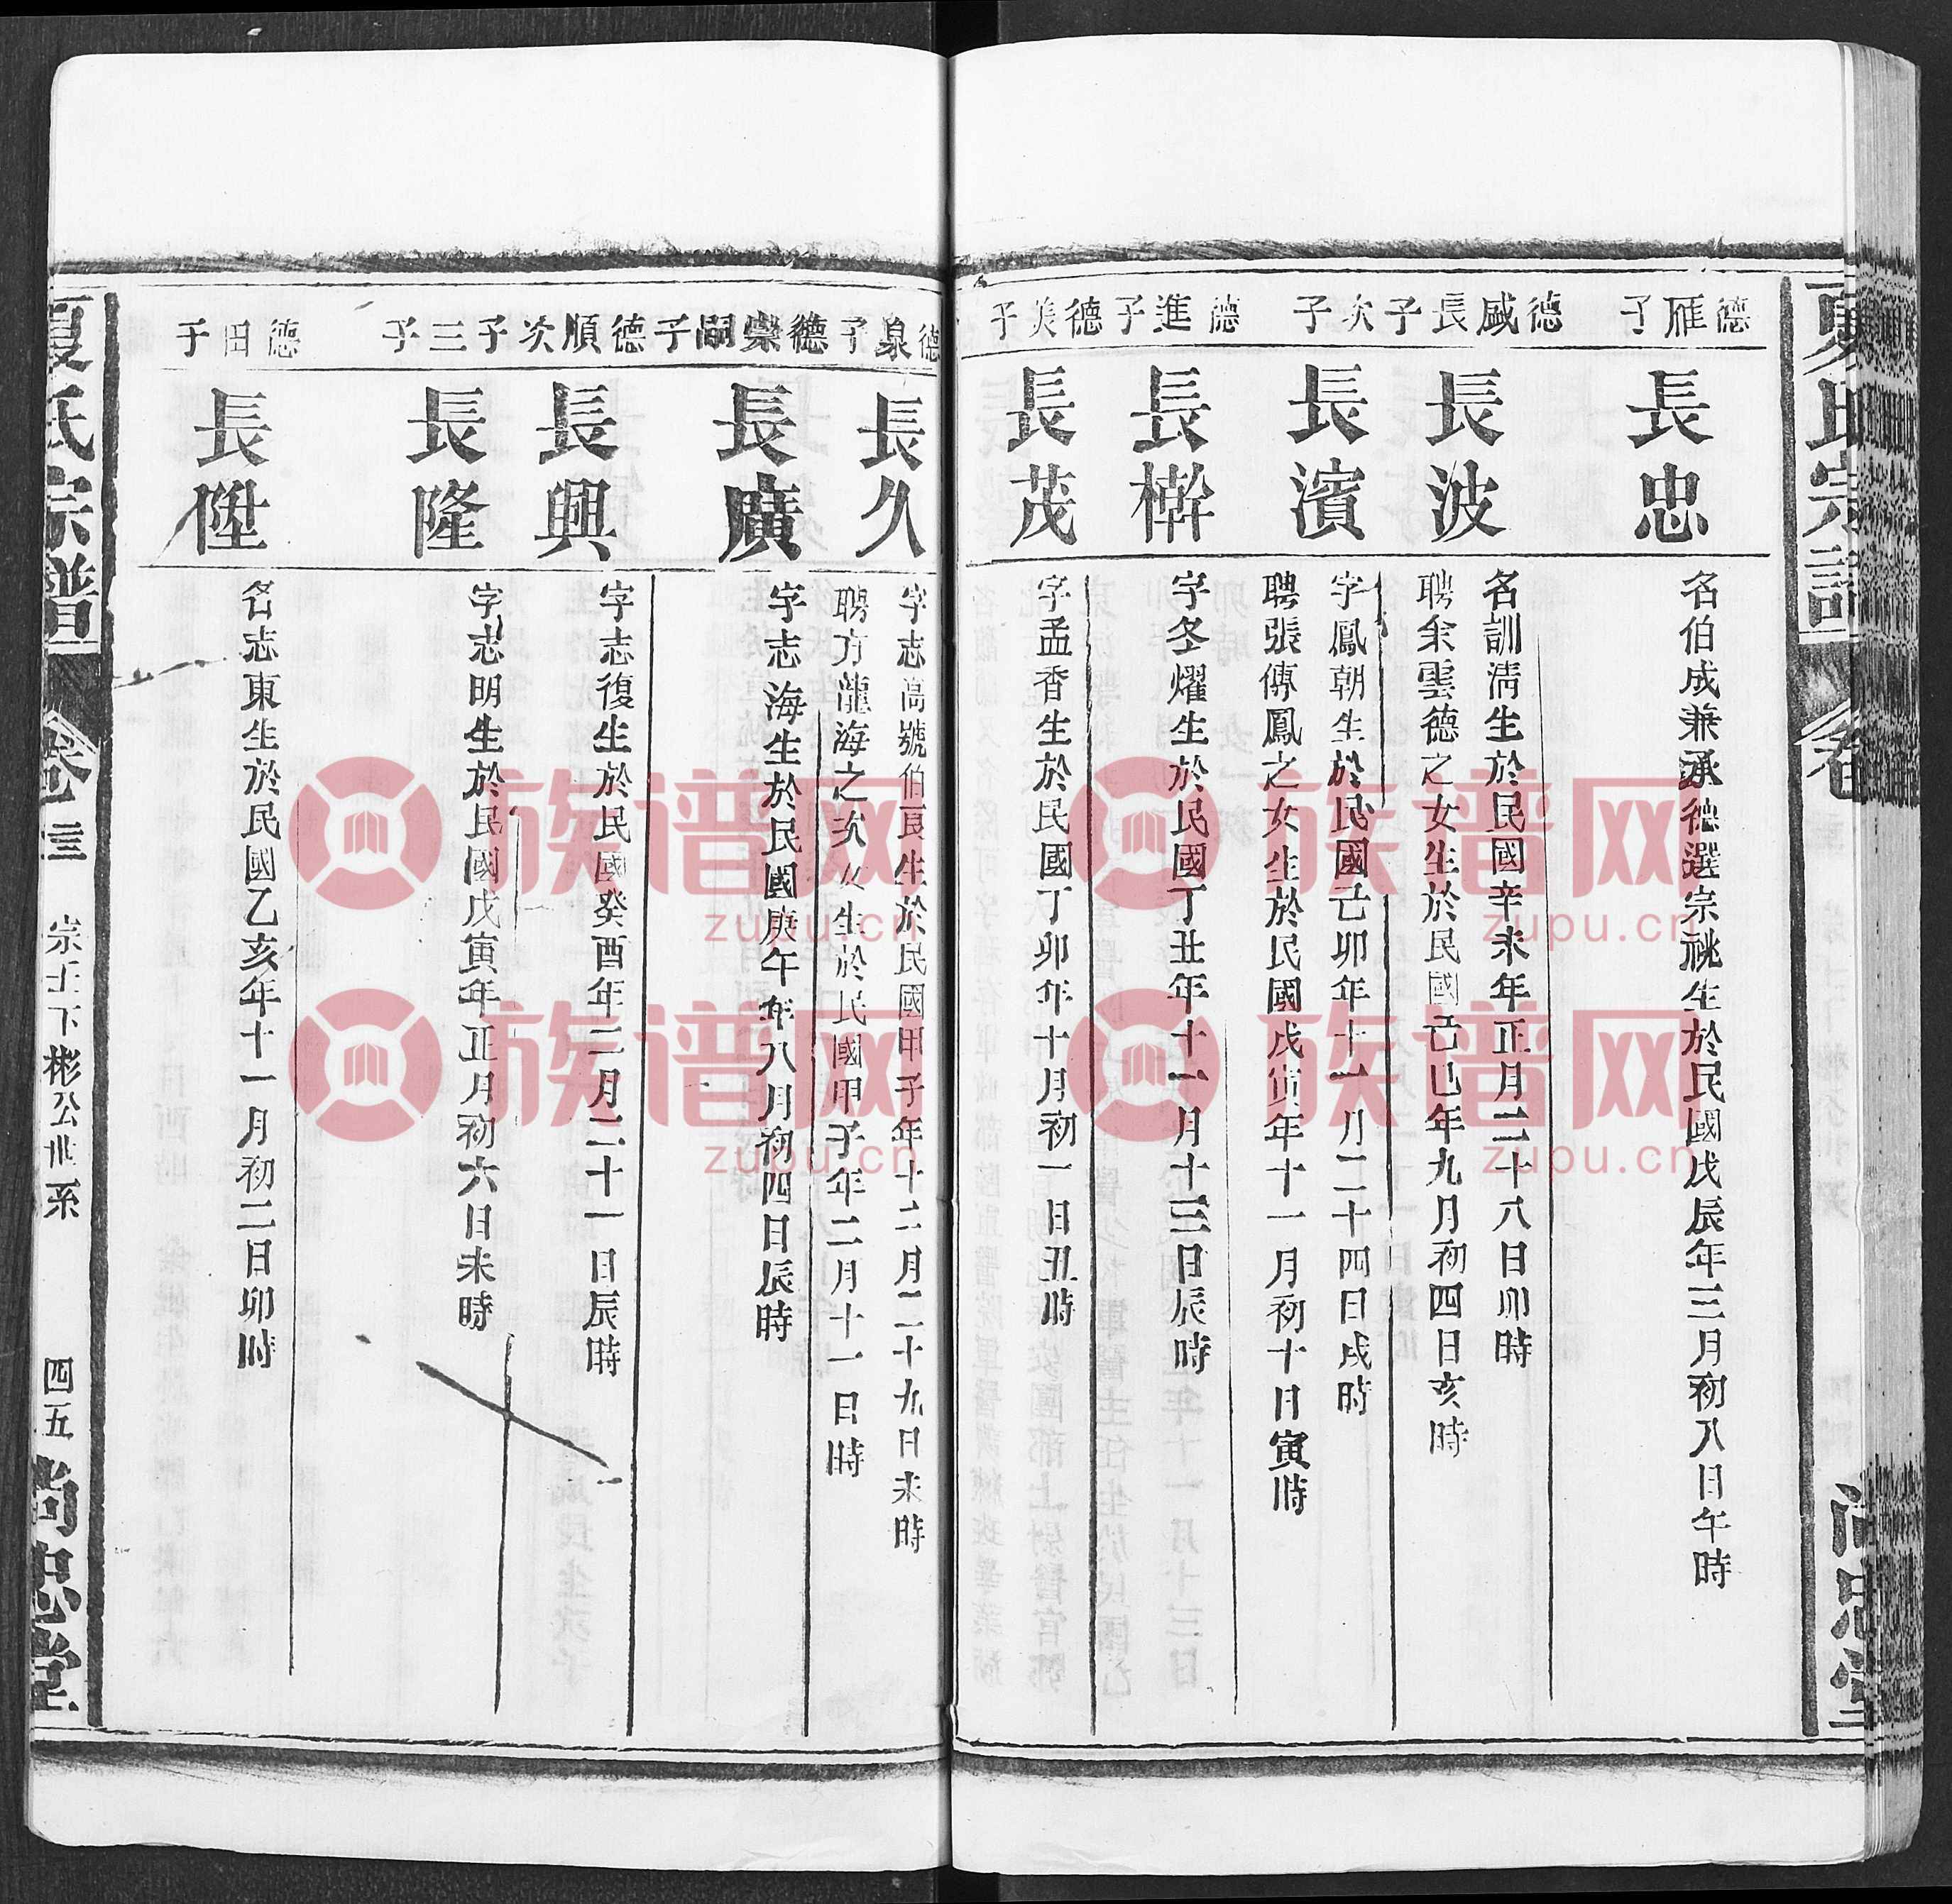 德雁子
長忠
名伯成兼承德選宗祧生於民國戊辰年三月初八日午時
德威長子
長波
名訓清生於民國辛未年正月二十八日卯時
聘余雲德之女生於民國己巳年九月初四日亥時
次子
長濱
字鳳朝生於民國己卯年十一月二十四日戌時
聘張傳鳳之女生於民國戊寅年十一月初十日寅時
德進子
長榦
字冬燿生於民國丁丑年十一月十三日辰時
德美子
長茂
字孟香生於民國丁卯年十月初一日丑時
德泉子
長久
字志高號伯良生於民國甲子年十二月二十九日未時
聘方龍海之次女生於民國甲子年二月十一日時
德崇嗣子
長廣
字志海生於民國庚午年八月初四日辰時
德順次子
長興
字志復生於民國癸酉年二月二十一日辰時
三子
長隆
字志明生於民國戊寅年正月初六日未時
德田子
長陞
名志東生於民國乙亥年十一月初二日卯時
夏氏宗譜
卷三
宗士下彬公世系
四五
尚忠堂
夏氏宗譜
卷
尚忠堂
族谱网
zupu.cn
族谱网
zupu.cn
族谱网
zupu.cn
族谱网
zupu.cn